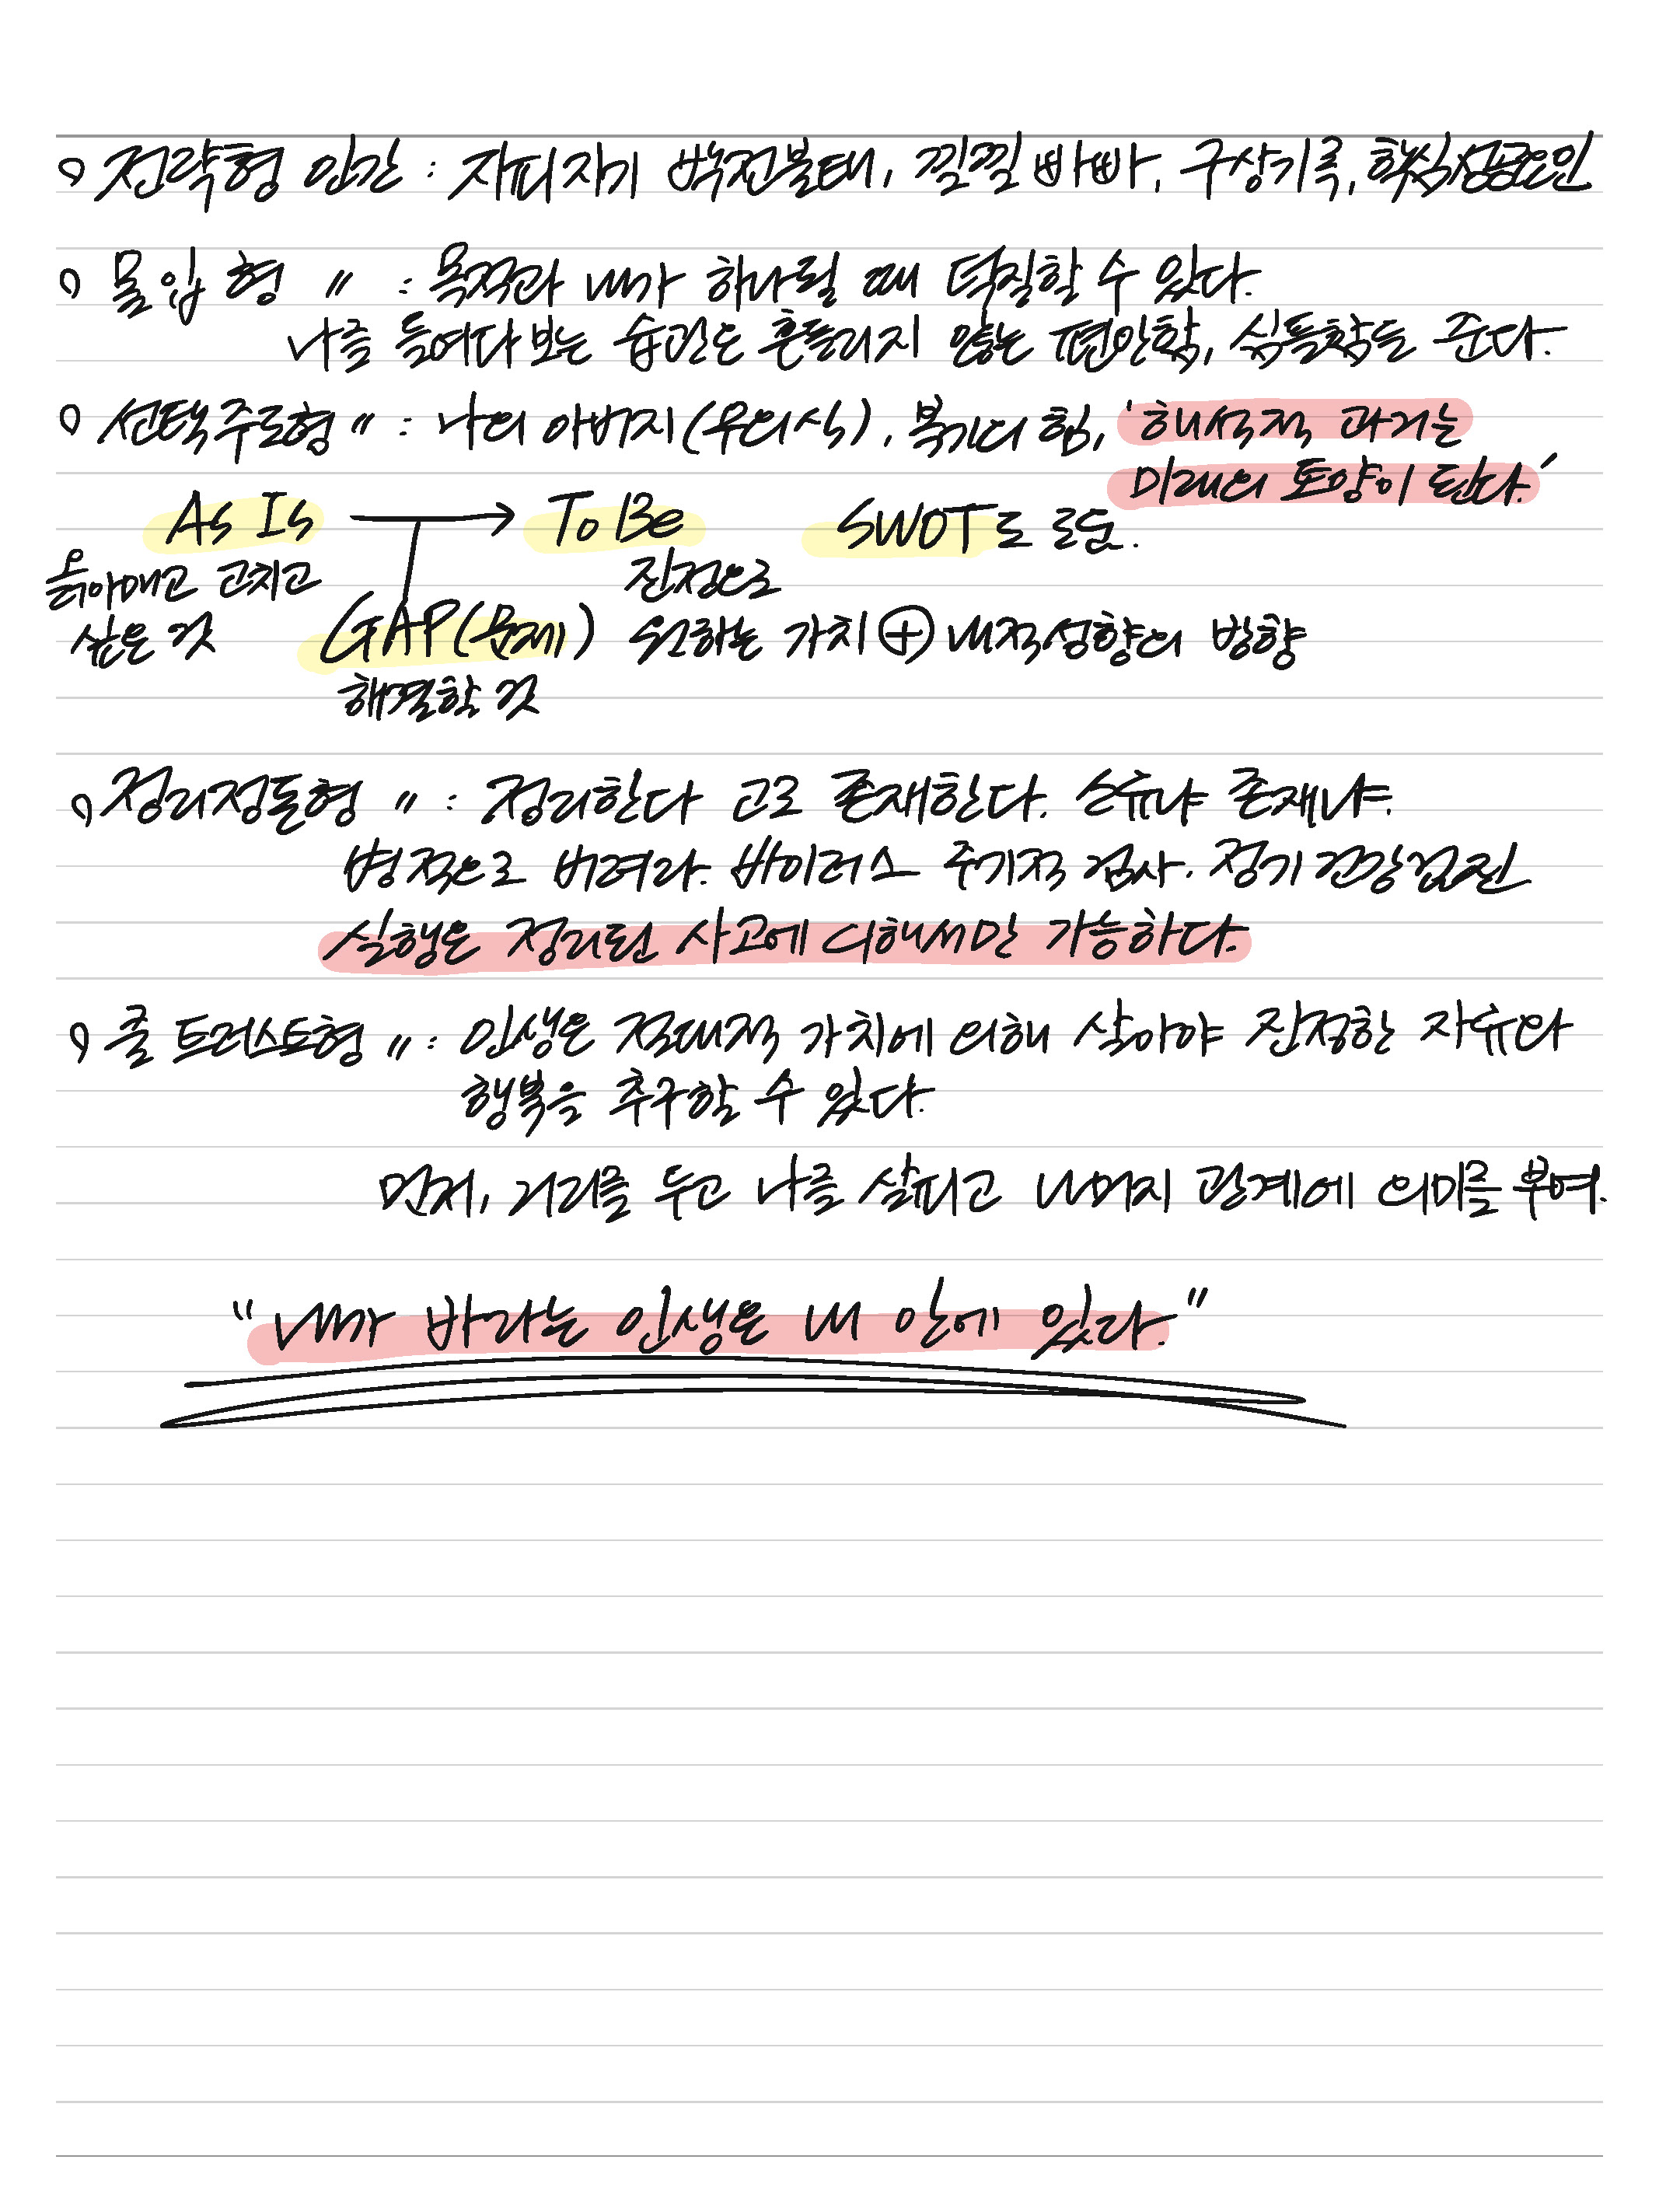 전략형 인간 : 지피지기 백전불태, 낄낄빠빠, 구상기록, 핵심성공요인
몰입형 〃 : 목적과 내가 하나될 때 덕질할 수 있다.
나를 들여다 보는 습관은 흔들리지 않는 편안함, 심돌함도 준다.
선택주도형 〃 : 나의 아버지(무의식), 복기의 힘, '해석적 과거는
미래의 토양이 된다.'
As Is → To Be SWOT도 도움.
옭아매고 고치고 진정으로
싶은 것 GAP(문제) 원하는 가치 ⊕ 내적성향의 방향
해결할 것
정리정돈형 〃 : 정리한다 고로 존재한다. 소유냐 존재냐.
병적으로 버려라. 바이러스 주기적 검사. 정기 건강검진
실행은 정리된 사고에 의해서만 가능하다.
쿨 트러스트형 〃 : 인생은 절대적 가치에 의해 살아야 진정한 자유와
행복을 추구할 수 있다.
먼저, 거리를 두고 나를 살피고 나머지 관계에 의미를 부여.
"내가 바라는 인생은 내 안에 있다."